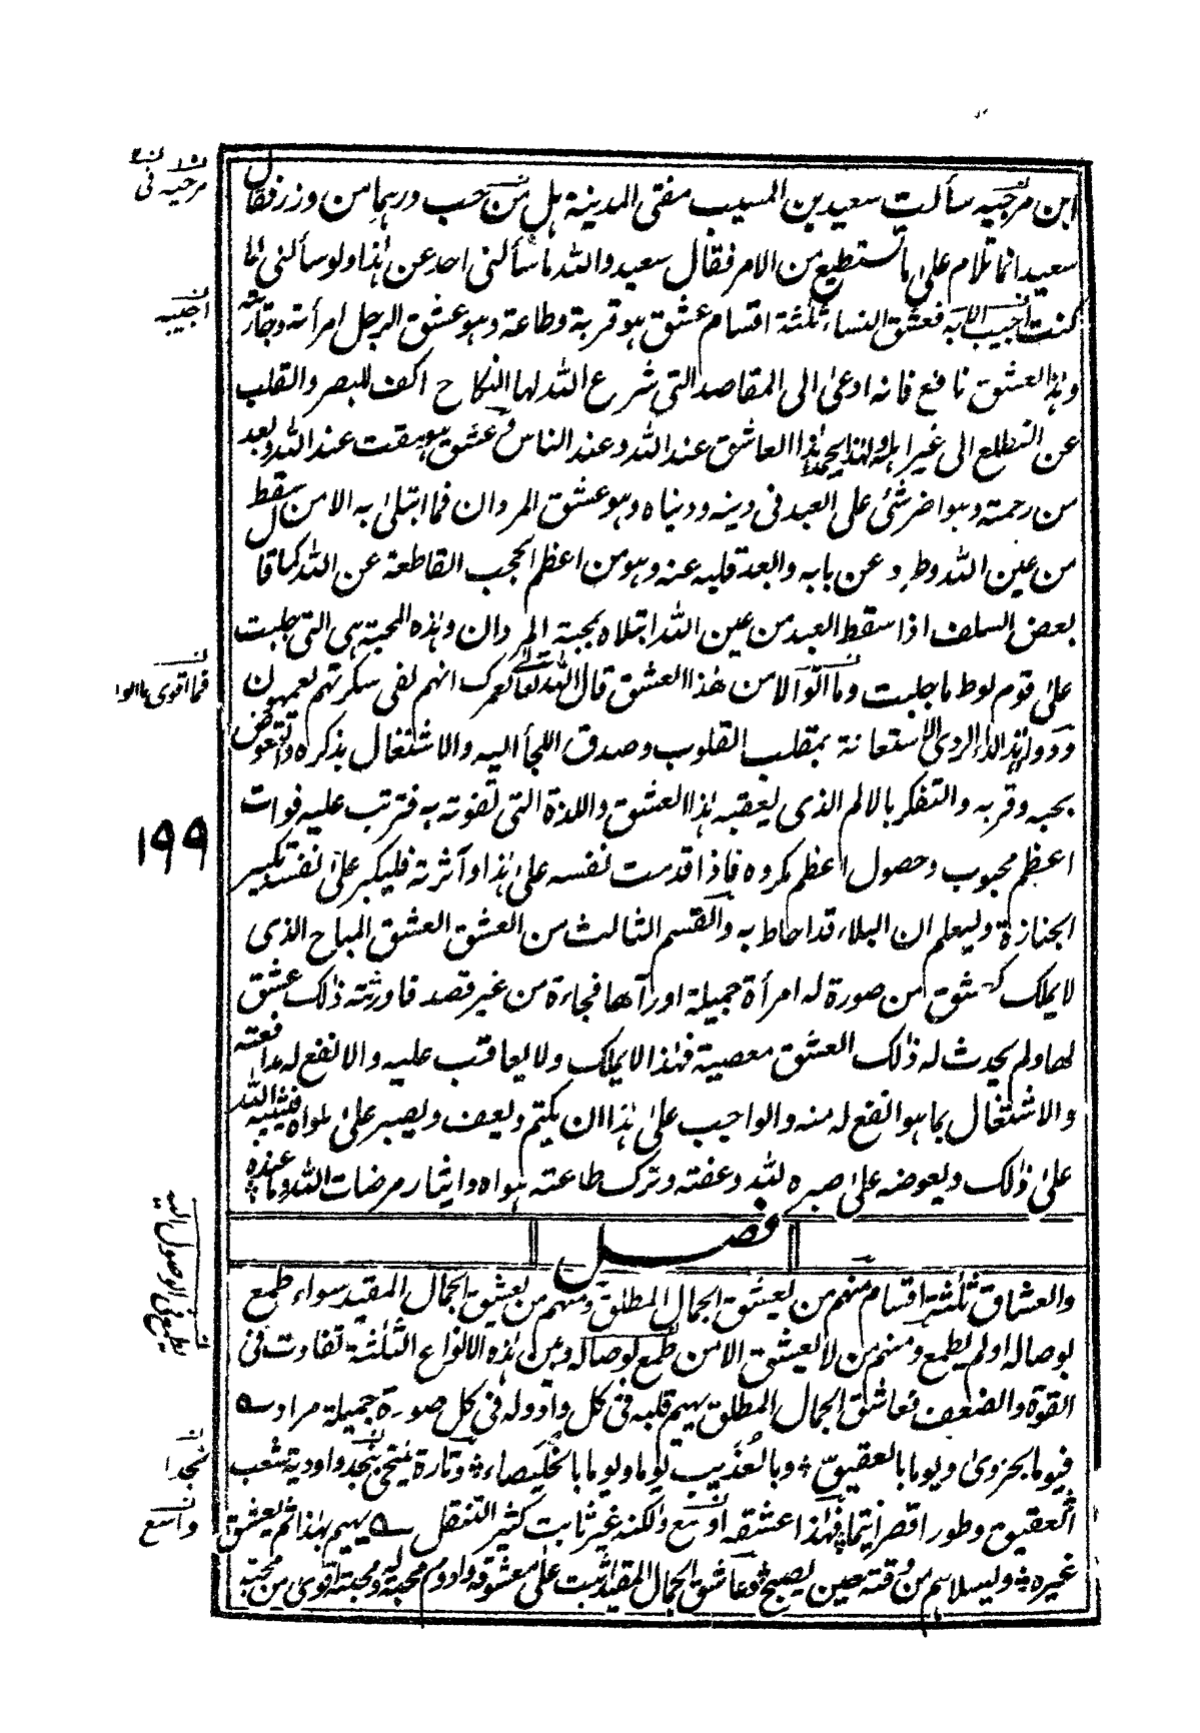 ابن مرجيه سألت سعيد بن المسيب مفتى المدينة هل من حب درهما من وزر فقال
سعيد انما تلام على ما تستطيع من الامر فقال سعيد والله ما سألنى احد عن هذا ولو سألنى لما
كنت اجيب الا به فعشق النساء ثلثة اقسام عشق هو قربة وطاعة وهو عشق الرجل امرأته وجاريته
وهذا العشق نافع فانه ادعى الى المقاصد التى شرع الله لها النكاح اكف للبصر والقلب
عن التطلع الى غير اهله ولهذا يحمد هذا العاشق عند الله وعند الناس وعشق هو مقت عند الله وبعد
من رحمته وهو اضر شئ على العبد فى دينه ودنياه وهو عشق المردان فما ابتلى به الا من سقط
من عين الله وطرد عن بابه وابعد قلبه عنه وهو من اعظم الحجب القاطعة عن الله كما قال
بعض السلف اذا سقط العبد من عين الله ابتلاه بمحبة المردان وهذه المحبة هى التى جلبت
على قوم لوط ما جلبت وما اتوا الا من هذا العشق قال الله تعالى لعمرك انهم لفى سكرتهم يعمهون
ودواء هذا الداء الردى الاستعانة بمقلب القلوب وصدق اللجأ اليه والاشتغال بذكره والتعوض
بحبه وقربه والتفكر بالالم الذى يعقبه هذا العشق واللذة التى تفوته به فترتب عليه فوات
اعظم محبوب وحصول اعظم مكروه فاذا اقدمت نفسه على هذا وآثرته فليكبر على نفسه تكبير
الجنازة وليعلم ان البلاء قد احاط به والقسم الثالث من العشق العشق المباح الذى
لا يملك كعشق من صورة له امرأة جميلة او رآها فجاءة من غير قصد فاورثته ذلك عشق
لها ولم يحدث له ذلك العشق معصية فهذا لا يملك ولا يعاقب عليه والانفع له مدافعته
والاشتغال بما هو انفع له منه والواجب على هذا ان يكتم ويعف ويصبر على بلواه فيثيبه الله
على ذلك ويعوضه على صبره لله وعفته وترك طاعته هواه وايثار مرضات الله وما عنده
فصل
والعشاق ثلثة اقسام منهم من يعشق الجمال المطلق ومنهم من يعشق الجمال المقيد سواء طمع
بوصاله او لم يطمع ومنهم من لا يعشق الا من طمع لوصاله وبين هذه الانواع الثلثة تفاوت فى
القوة والضعف فعاشق الجمال المطلق يهيم قلبه فى كل واد وله فى كل صورة جميلة مراد ؎
فيوما بحزوى ويوما بالعقيق وبالعذيب يوما ويوما بالخليصاء وتارة ينتحى بنجد واودية شعب
العقيق وطورا قصر تيماء فهذا عشقه اوسع ولكنه غير ثابت كثير التنقل ؎ يهيم بهذا ثم يعشق
غيره وليسلاهم من وقته حين يصبح وعاشق الجمال المقيد اثبت على معشوقه وادوم محبة له ومحبته اقوى من محبة
مرجيه فى
اجيبه
فما اقوى ما اتوا
١٩٩
يطمع فى الوصول اليه
نجدا
واسع